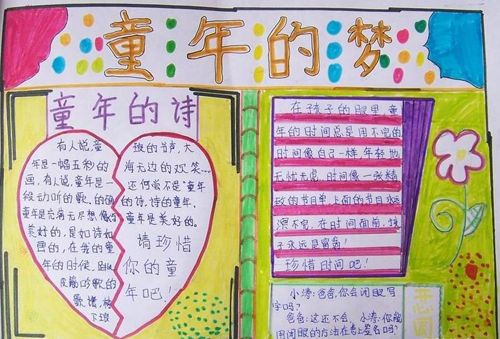 童年的梦
童年的诗
有人说，童
年是一幅五秒的
画，有人说，童年是一
段动听的歌，的确
童年是充满无尽想像
美好的，是如诗如
画的，在我的童
年的时候，趴
歌谣，林
下琅
琅的书声，大
海无边的欢笑……
还何尝不是童年
的诗，诗的童年，
童年是美好的。
请珍惜
你的童
年吧！
在孩子的眼里，童
年的时间总是用不完的
时间像自己一样，年轻也
无忧无虑，时间像一张精
致的节目单，上面的节目永远
演不完，在时间面前，孩
子永远是富翁！
珍惜时间吧！
小涛：爸爸，你会闭眼写
字吗？
爸爸：这还不会，小涛：你能
用闭眼的方法在卷上签名吗？